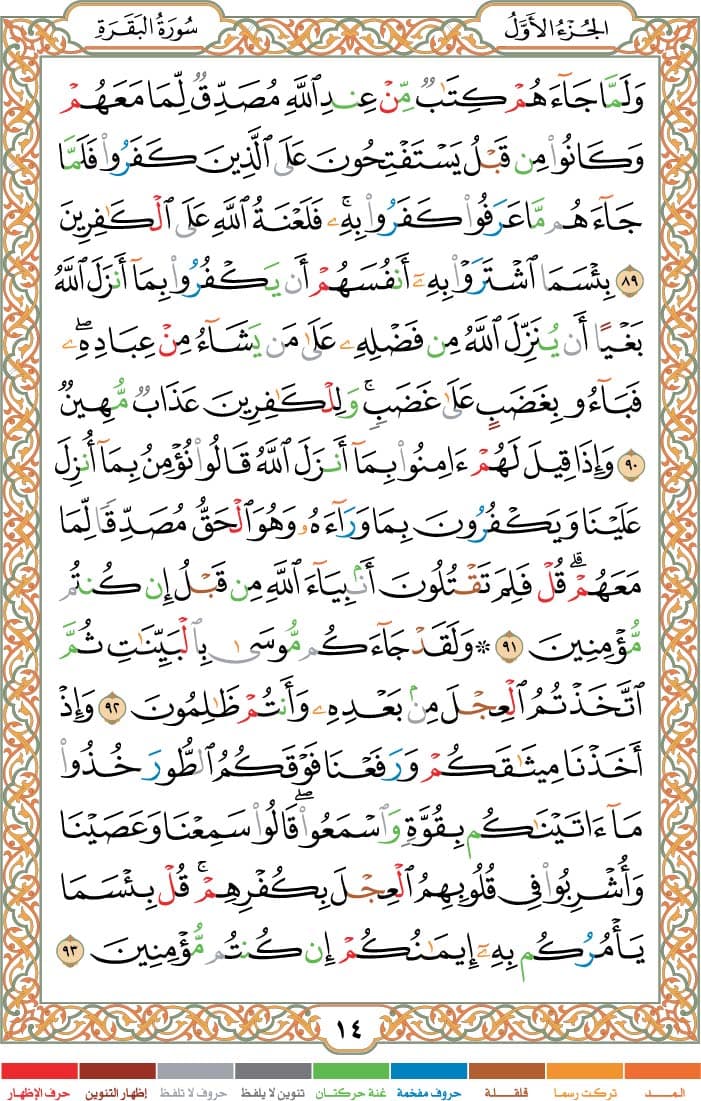 الجُزْءُ الأَوَّلُ
سُورَةُ البَقَرَةِ
وَلَمَّا جَآءَهُمْ كِتَٰبٌ مِّنْ عِندِ ٱللَّهِ مُصَدِّقٌ لِّمَا مَعَهُمْ
وَكَانُوا۟ مِن قَبْلُ يَسْتَفْتِحُونَ عَلَى ٱلَّذِينَ كَفَرُوا۟ فَلَمَّا
جَآءَهُم مَّا عَرَفُوا۟ كَفَرُوا۟ بِهِۦ ۚ فَلَعْنَةُ ٱللَّهِ عَلَى ٱلْكَٰفِرِينَ
٨٩ بِئْسَمَا ٱشْتَرَوْا۟ بِهِۦٓ أَنفُسَهُمْ أَن يَكْفُرُوا۟ بِمَآ أَنزَلَ ٱللَّهُ
بَغْيًا أَن يُنَزِّلَ ٱللَّهُ مِن فَضْلِهِۦ عَلَىٰ مَن يَشَآءُ مِنْ عِبَادِهِۦ ۖ
فَبَآءُو بِغَضَبٍ عَلَىٰ غَضَبٍ ۚ وَلِلْكَٰفِرِينَ عَذَابٌ مُّهِينٌ
٩٠ وَإِذَا قِيلَ لَهُمْ ءَامِنُوا۟ بِمَآ أَنزَلَ ٱللَّهُ قَالُوا۟ نُؤْمِنُ بِمَآ أُنزِلَ
عَلَيْنَا وَيَكْفُرُونَ بِمَا وَرَآءَهُۥ وَهُوَ ٱلْحَقُّ مُصَدِّقًا لِّمَا
مَعَهُمْ ۗ قُلْ فَلِمَ تَقْتُلُونَ أَنۢبِيَآءَ ٱللَّهِ مِن قَبْلُ إِن كُنتُم
مُّؤْمِنِينَ ٩١ ۞ وَلَقَدْ جَآءَكُم مُّوسَىٰ بِٱلْبَيِّنَٰتِ ثُمَّ
ٱتَّخَذْتُمُ ٱلْعِجْلَ مِنۢ بَعْدِهِۦ وَأَنتُمْ ظَٰلِمُونَ ٩٢ وَإِذْ
أَخَذْنَا مِيثَٰقَكُمْ وَرَفَعْنَا فَوْقَكُمُ ٱلطُّورَ خُذُوا۟
مَآ ءَاتَيْنَٰكُم بِقُوَّةٍ وَٱسْمَعُوا۟ ۖ قَالُوا۟ سَمِعْنَا وَعَصَيْنَا
وَأُشْرِبُوا۟ فِى قُلُوبِهِمُ ٱلْعِجْلَ بِكُفْرِهِمْ ۚ قُلْ بِئْسَمَا
يَأْمُرُكُم بِهِۦٓ إِيمَٰنُكُمْ إِن كُنتُم مُّؤْمِنِينَ ٩٣
١٤
المـــد
تركت رسما
قلقـلـة
حروف مفخمة
غنة حركتان
تنوين لا يلفظ
حروف لا تلفظ
إظهار التنوين
حرف الإظهار